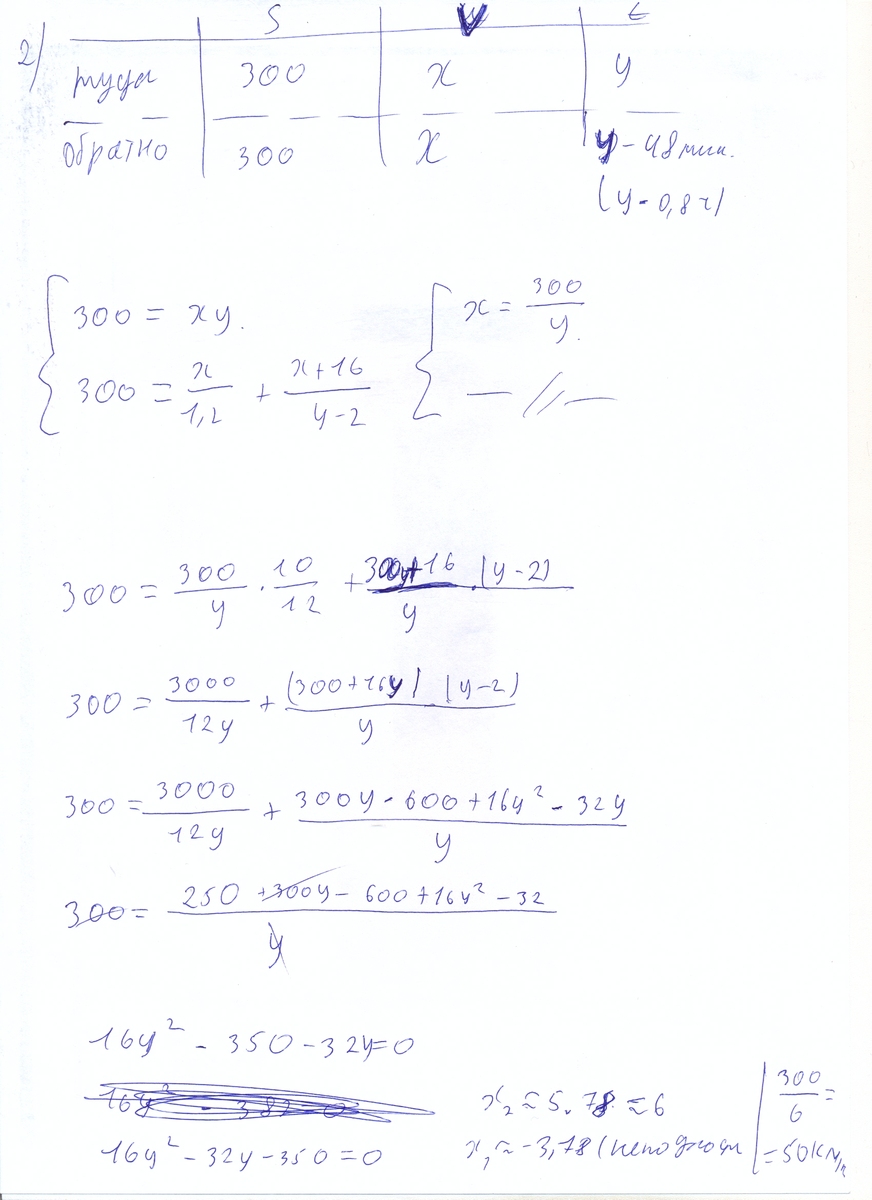 2) S V t
туда 300 x y
обратно 300 x y - 48 мин.
(y - 0,8 ч)
{ 300 = xy. { x = 300/y.
300 = x/1,2 + (x+16)/(y-2) — // —
300 = 300/y · 10/12 + (300y+16 · (y-2))/y
300 = 3000/12y + ((300+16y) (y-2))/y
300 = 3000/12y + (300y - 600 + 16y² - 32y)/y
300 = (250 + 300y - 600 + 16y² - 32)/y
16y² - 350 - 32y = 0
16y² - 382 = 0
16y² - 32y - 350 = 0
x₂ ≈ 5.78 ≈ 6
x₁ ≈ -3,78 (неподходи
300/6 =
= 50 км/ч